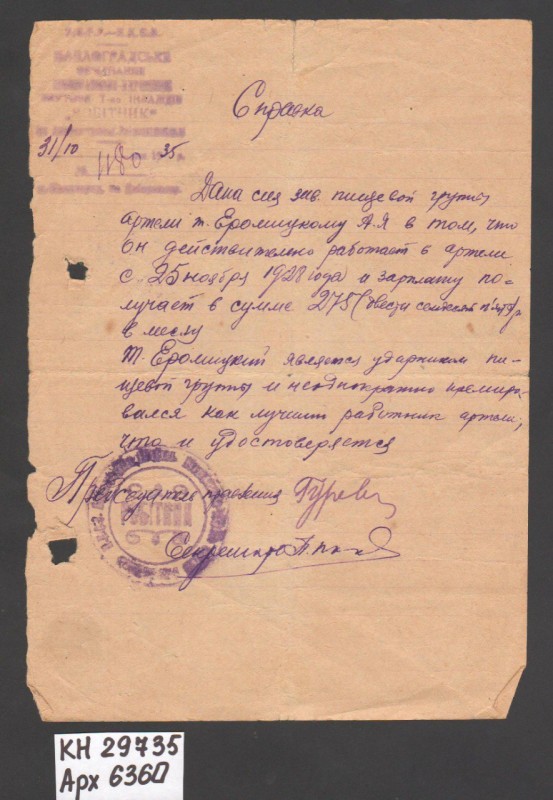 ПАВЛОГРАДСЬКЕ
"РОБІТНИК"
31/10 35
1180
Справка
Дана сия зав. пищевой группы
артели т. Еромицкому А.Я в том, что
он действително работает в артели
с 25 ноября 1928 года и зарплату по-
лучает в сумме 275 (двести семдесят пять) р
в месяц
Т. Еромицкий является ударником пи-
щевой группы и неоднократно премиро-
вался как лучший работник артели,
что и удостоверяется
Председатель правления Гуревич
РОБІТНИК
Секретарь
КН 29735
Арх 6360